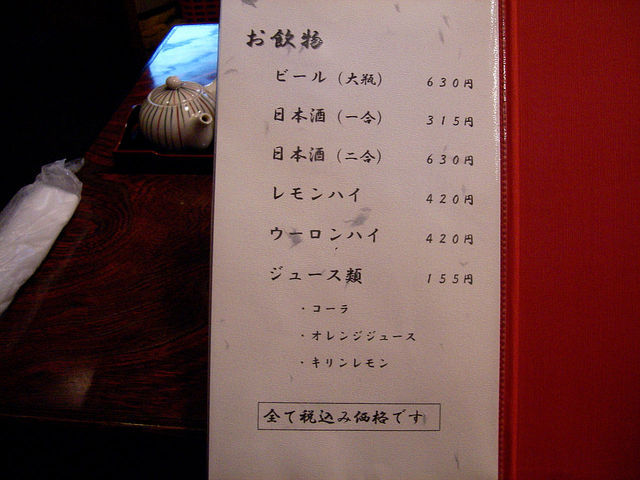 お飲物
ビール（大瓶） 630円
日本酒（一合） 315円
日本酒（二合） 630円
レモンハイ 420円
ウーロンハイ 420円
ジュース類 155円
・コーラ
・オレンジジュース
・キリンレモン
全て税込み価格です